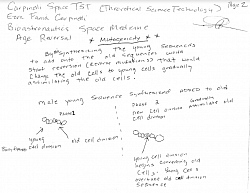 Carpinelli Space TST (Theoretical Science Technology) Page 2
Ezra Farid Carpinelli
Bioastronautics Space Medicine
Age Reversal * Mutagenicity *
By Synthesizing The young Sequences
to add onto The old Sequences would
start conversion (Reverse mutations) That would
Change The old Cells to young Cells gradually
assimilating the old cells.
Male young Sequence Synthesized added to old
Phase 1
Phase 2
new Cell division assimilate old
cell division
young cell division
old cell division
Young Cell division
begins converting old
Cells; Young Cells
overtake old cell division
Sequence